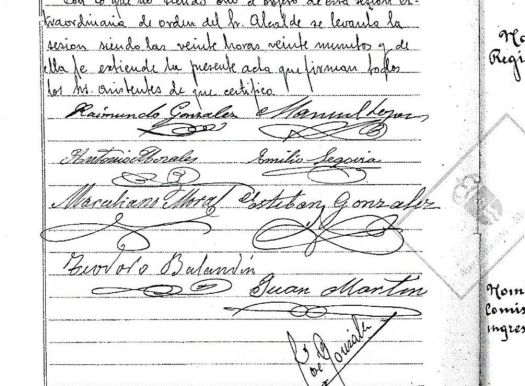 con lo que no siendo otro el objeto de esta sesion ex-
traordinaria de orden del Sr. Alcalde se levanta la
sesion siendo las veinte horas veinte minutos y de
ella se extiende la presente acta que firman todos
los Sr. asistentes de que certifico.
Raimundo Gonzalez Manuel Lopez
Antonio Morales Emilio Segovia
Marceliano Moral Esteban Gonzalez
Teodoro Balandin
Juan Martin
Gonzalez
No
Regi
Nom
Comis
ingres